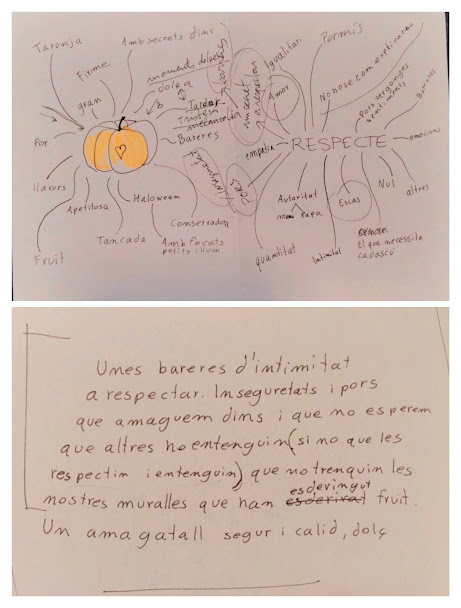 Taronja
Firme
gran
Por
llavors
Fruit
Apetitosa
Tancada
Amb secrets dins
moments dolços
dolça
Tardor
Tristesa
melancolia
Bareres
Haloween
Conservadora
Amb forats
petits i llum
inseguretat
pors
bareres
RESPECTE
empatia
Amor
Igualitari
Permís
No ho se com explicarho
Pors, vergonyes
sentiments
Bareres
emocions
altres
Nul
El que necessita
cadascú
Escas
Intimitat
Autoritat
mama Papa
quantitat
Unes bareres d'intimitat
a respectar. Inseguretats i pors
que amaguem dins i que no esperem
que altres ho entenguin (si no que les
respectin i entenguin) que no trenquin les
esdevingut
nostres muralles que han esderirat fruit.
Un amagatall segur i calid, dolç